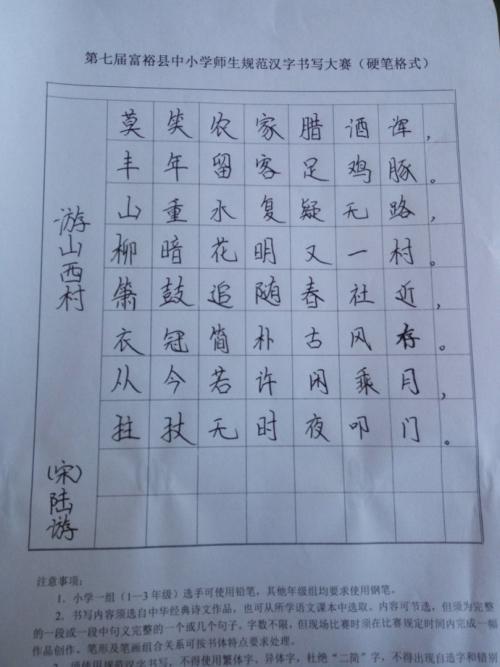 第七届富裕县中小学师生规范汉字书写大赛（硬笔格式）
游山西村
（宋）陆游
莫笑农家腊酒浑，
丰年留客足鸡豚。
山重水复疑无路，
柳暗花明又一村。
箫鼓追随春社近，
衣冠简朴古风存。
从今若许闲乘月，
拄杖无时夜叩门。
注意事项：
1．小学一组（1—3年级）选手可使用铅笔，其他年级组均要求使用钢笔。
2．书写内容须选自中华经典诗文作品，也可从所学语文课本中选取。内容可节选，但须为完整
的一段或一段中句义完整的一个或几个句子，字数不限，但现场比赛时须在比赛规定时间内完成一幅
作品创作。笔形及笔画组合关系可按书体特点要求处理。
使用规范汉字书写，不得使用繁体字、异体字，杜绝“二简”字，不得出现自造字和错别